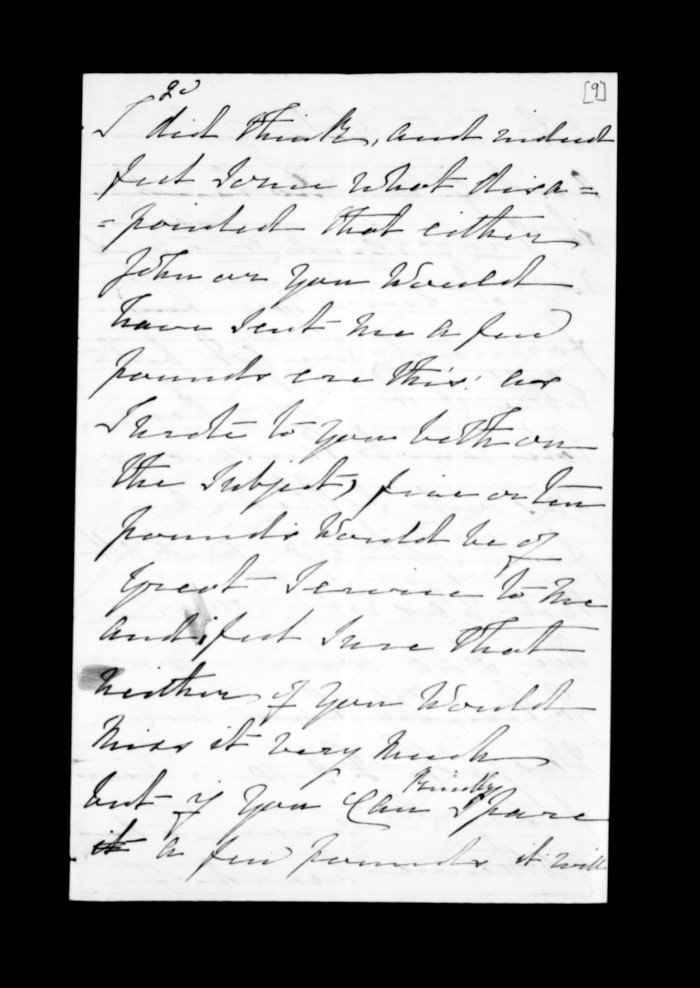 [9]
I did think, and indeed
felt some what disa=
=pointed that either
John or you would
have sent me a few
pounds ere this: as
I wrote to you both on
the subject, five or ten
pounds would be of
great service to me
and i feel sure that
neither of you would
miss it very much
but if you can Kindly spare
it a few pounds it will